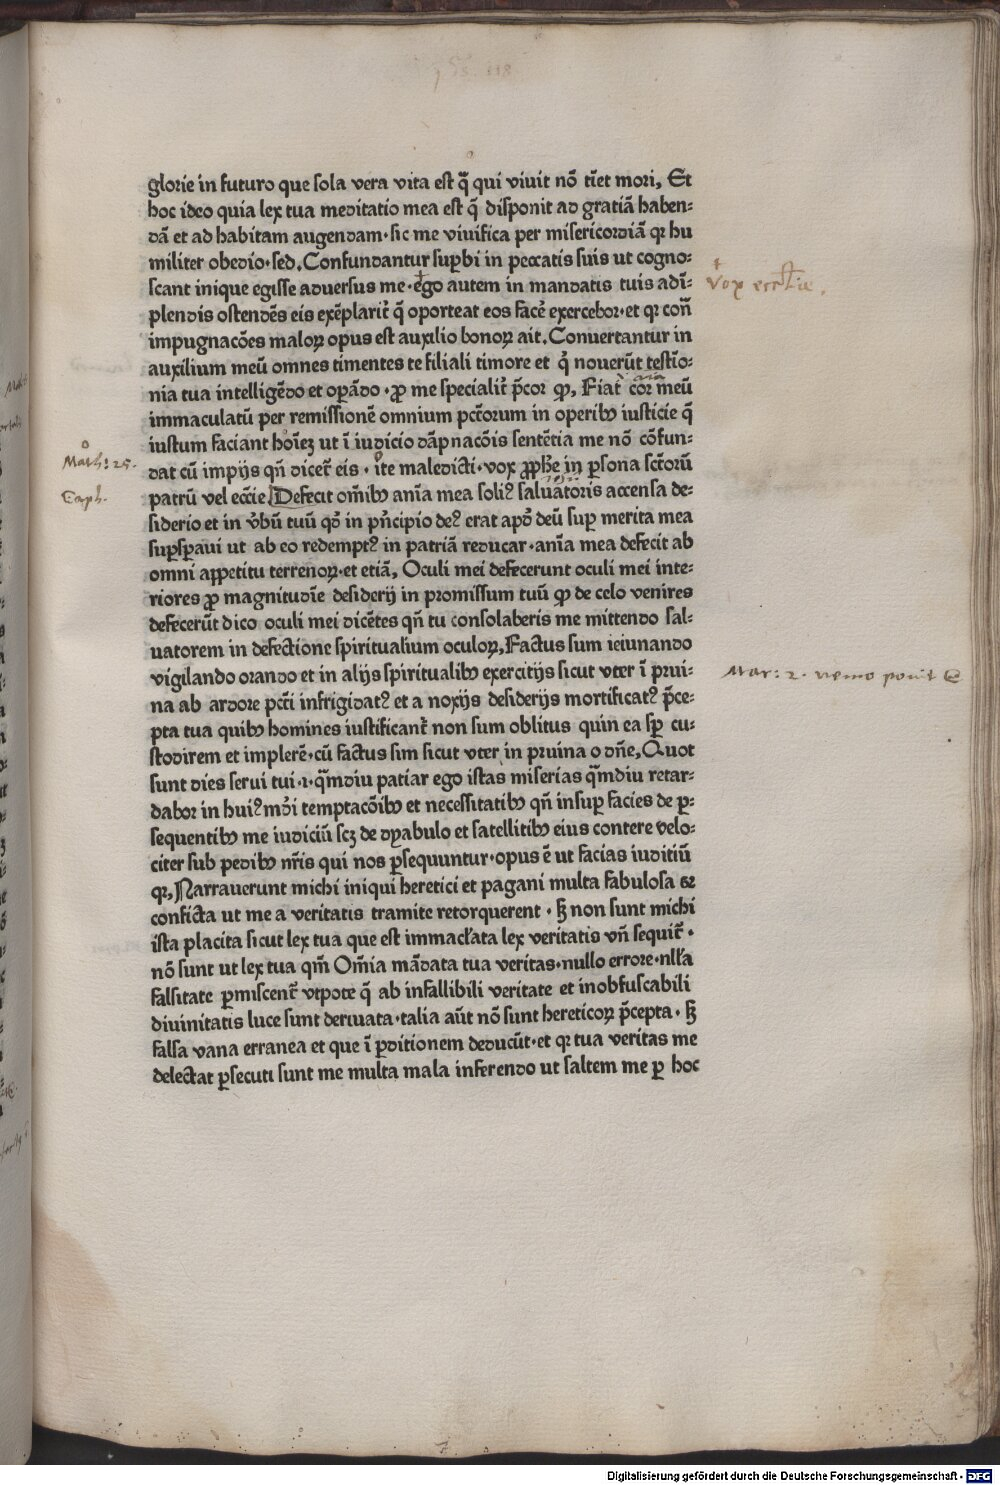 glorie in futuro que sola vera vita est q̄ qui viuit nō tīet mori, Et
hoc ideo quia lex tua meditatio mea est q̄ disponit ad gratiā haben⸗
dā et ad habitam augendam·sic me viuifica per misericordiā qꝛ hu
militer obedio·sed.Confundantur suꝑbi in peccatis suis ut cogno⸗
scant inique egisse aduersus me·ego autem in mandatis tuis adī⸗
plendis ostendēs eis exēplarit̄ q̄ oporteat eos facē exercebor·et qꝛ con̄
impugnacōes maloꝝ opus est auxilio bonoꝝ ait.Conuertantur in
auxilium meū omnes timentes te filiali timore et q̄ nouerūt testīo⸗
nia tua intelligēdo et oꝑādo·ꝓ me specialit̄ p̄cor ꝙ, Fiat cor meū
immaculatū per remissionē omnium pct̄orum in operibꝫ iusticie q̄
iustum faciant hoīeꝫ ut ī iudicio dāpnacōis sentētia me nō cōfun⸗
dat cū impijs qn̄ dicet̄ eis·ite maledicti·vox ꝓph̄e in ꝑsona sct̄orū
patrū vel ecc̄ie.Defecit om̄ibꝫ anīa mea soliꝰ saluatoris accensa de⸗
siderio et in v̄bū tuū qd̄ in pn̄cipio deꝰ erat apd̄ deū suꝑ merita mea
suꝑsꝑaui ut ab eo redemptꝰ in patriā reducar·anīa mea defecit ab
omni appetitu terrenoꝝ·et etiā, Oculi mei defecerunt oculi mei inte⸗
riores ꝓ magnitudīe desiderij in promissum tuū ꝙ de celo venires
defecerūt dico oculi mei dicētes qn̄ tu consolaberis me mittendo sal⸗
uatorem in defectione spiritualium oculoꝝ,Factus sum ieiunando
vigilando orando et in alijs spiritualibꝫ exercitijs sicut vter ī prui⸗
na ab ardore pct̄i infrigidatꝰ et a noxijs desiderijs mortificatꝰ p̄ce⸗
pta tua quibꝫ homines iustificant̄ non sum oblitus quin ea sꝑ cu⸗
stodirem et implerē·cū factus sim sicut vter in pruina o dn̄e,Quot
sunt dies serui tui·i·q̄mdiu patiar ego istas miserias q̄mdiu retar⸗
dabor in huiꝰmōi temptacōibꝫ et necessitatibꝫ qn̄ insuꝑ facies de ꝑ⸗
sequentibꝫ me iudiciū scꝫ de dyabulo et satellitibꝫ eius contere velo⸗
citer sub pedibꝫ nr̄is qui nos ꝑsequuntur·opus ē ut facias iuditiū
qꝛ,Narrauerunt michi iniqui heretici et pagani multa fabulosa ⁊
conficta ut me a veritatis tramite retorquerent·sꝫ non sunt michi
ista placita sicut lex tua que est immacl̄ata lex veritatis vn̄ sequit̄·
nō sunt ut lex tua qm̄ Om̄ia mādata tua veritas·nullo errore·nll̄a
falsitate ꝑmiscent̄ vtpote q̄ ab infallibili veritate et inobfuscabili
diuinitatis luce sunt deriuata·talia aūt nō sunt hereticoꝝ p̄cepta·sꝫ
falsa vana erranea et que ī ꝑditionem deducūt·et qꝛ tua veritas me
delectat ꝑsecuti sunt me multa mala inferendo ut saltem me ꝑ hoc
Math: 25.
Caph.
vox
Mar: 2. nemo ponit
Digitalisierung gefördert durch die Deutsche Forschungsgemeinschaft · DFG